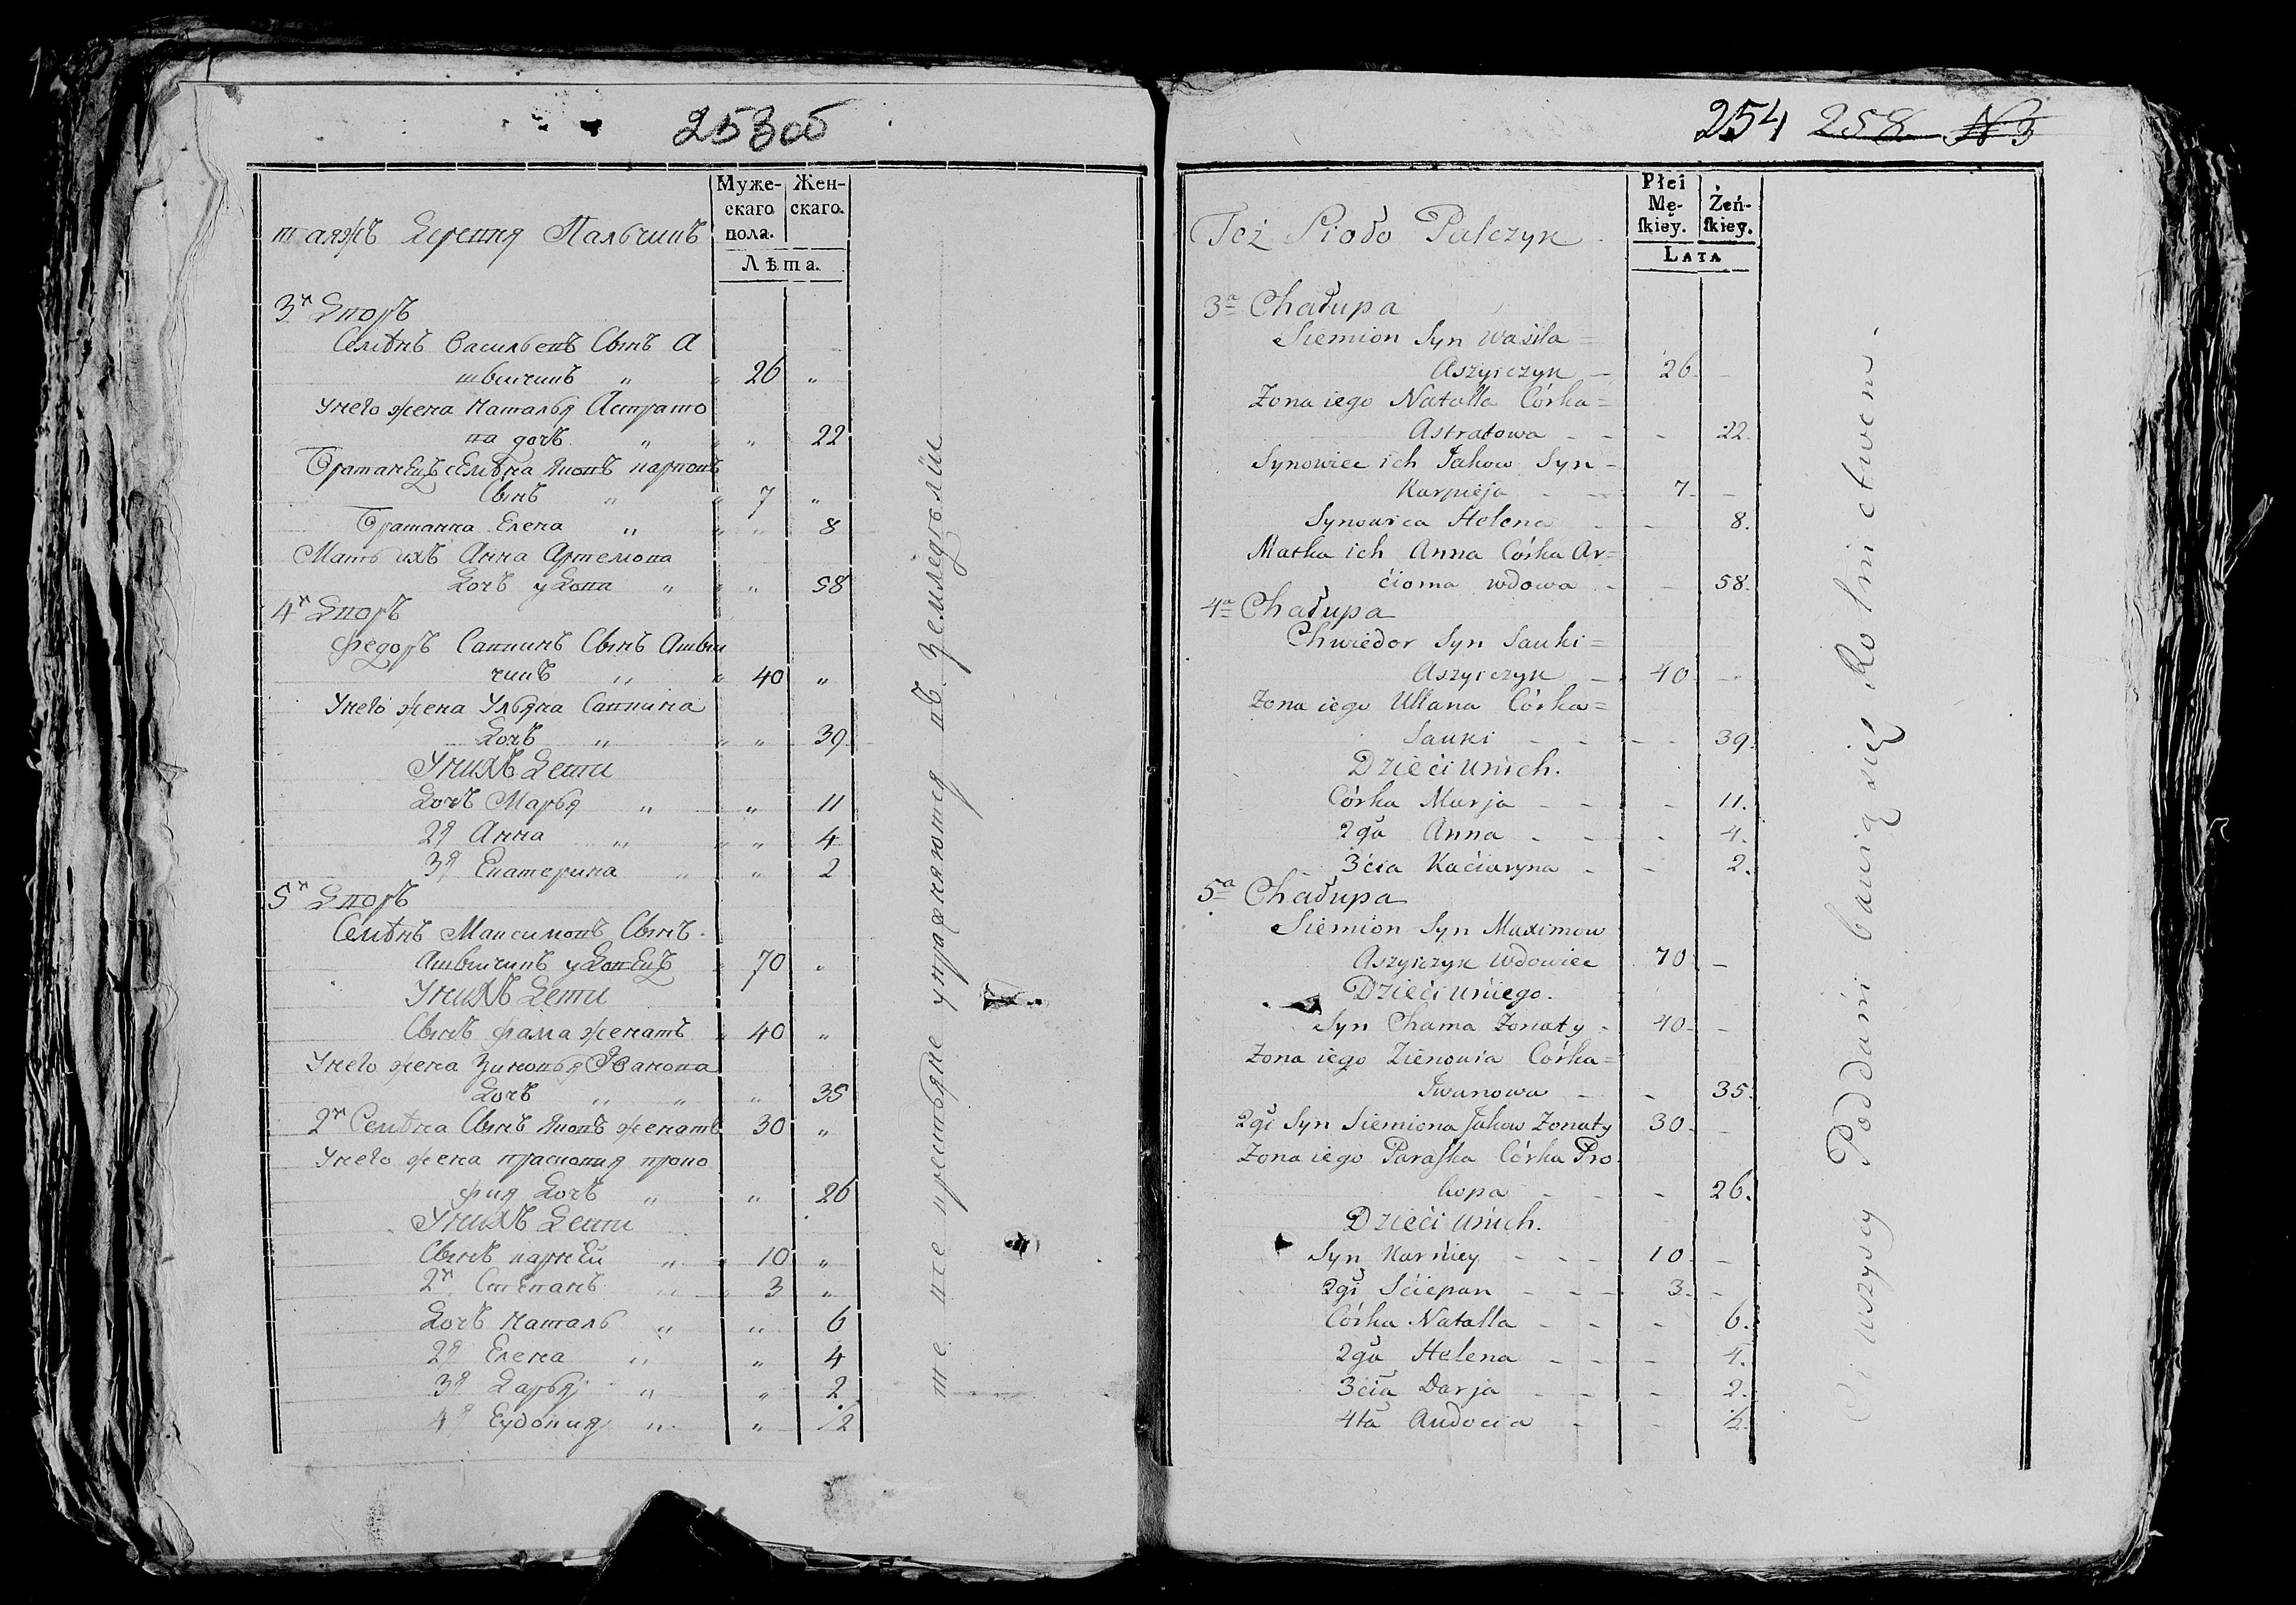 253об
Муже-
скаго
пола.
Жен-
скаго.
Лѣта.
таяжъ Деревня Пальчикъ
3й Дворъ
Семѣнъ Васильевъ Сынъ А
швычикъ „ „ 26 „
Унего жена Наталья Астрато
ва дочь „ „ „ 22
Братанецъ семѣна Яковъ карповъ
Сынъ „ „ 7 „
Братанка Елена „ „ „ 8
Мать ихъ Анна Артемова
Дочь удова „ „ „ 58
4й Дворъ
Федоръ Саввинъ Сынъ Ашвы
чикъ „ „ 40 „
Унего жена Ульяна Саввина
Дочь „ „ „ 39
Унихъ Дети
Дочь Марья „ „ 11
2я Анна „ „ „ 4
3я Екатерина „ „ 2
5й Дворъ
Семѣнъ Максимовъ Сынъ
Ашвычикъ удовецъ „ 70 „
Унихъ Дети
Сынъ фама женатъ „ 40 „
Унего жена Зиновья Иванова
Дочь „ „ „ 35
2й Семѣна Сынъ Яковъ женатъ 30 „
Унего жена прасковия проко
фия Дочь „ „ 26
Унихъ Дети
Сынъ карнѣй „ „ 10 „
2й Степанъ „ „ 3 „
Дочь Наталь „ „ 6
2я Елена „ „ 4
3я Дарья „ „ 2
4я Еудокия „ „ ½
те все крестьяне упражняются въ земледѣлии
254 258 N 3
Płci
Mę-
ſkiey.
Żeń-
ſkiey.
LATA
Też Sioło Palczyk
3a Chałupa
Siemion Syn Wasila =
Aszyiczyk – 26 –
Zona iego Natalla Córka =
Astratowa – – – 22.
Synowiec ich Jakow Syn –
Karpieja – – 7 –
Synowica Helena – – 8.
Matka ich Anna Córka Ar=
cioma wdowa – – 58.
4a Chałupa
Chwiedor Syn Sauki =
Aszyiczyk – 40 –
Zona iego Ullana Córka =
Sauki – – – – 39.
Dzieci unich.
Córka Marja – – – 11.
2ga Anna – – – 4.
3cia Kaciaryna – – 2.
5a Chałupa
Siemion Syn Maximow
Aszyiczyk Wdowiec 70 –
Dzieci uniego.
Syn Chama Zonaty – 40 –
Zona iego Zienowia Córka =
Iwanowa – – 35.
2gi Syn Siemiona Jakow Zonaty 30 –
Zona iego Paraſka Córka Pro
kopa – – – 26.
Dzieci unich.
Syn Karniey – – – 10 –
2gi Sciepan – – – 3 –
Córka Natalla – – – 6.
2ga Helena – – – 4.
3cia Darja – – – 2.
4ta Audocia – – ½.
Ci wszyscy Poddani bawią się Rolnictwem.